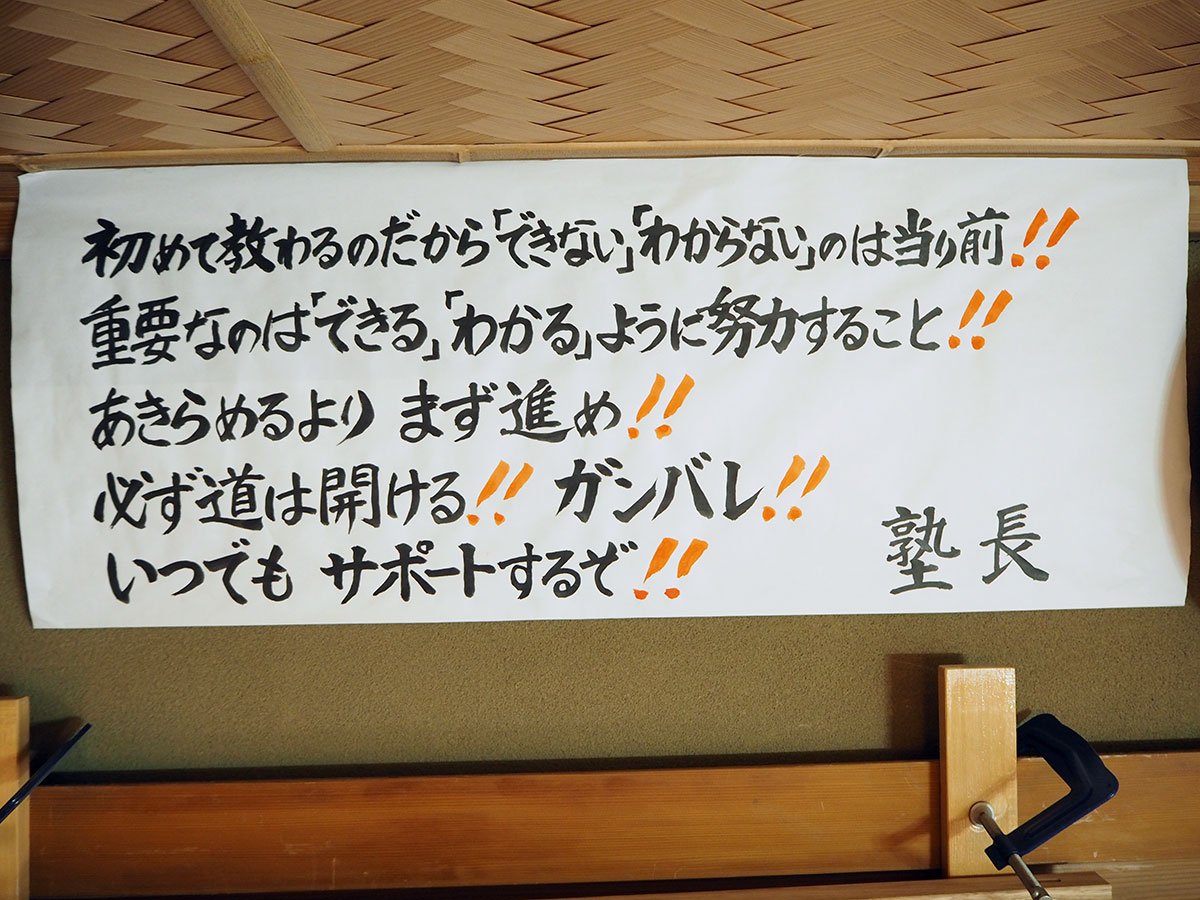 初めて教わるのだから「できない」「わからない」のは当り前!!
重要なのは「できる」「わかる」ように努力すること!!
あきらめるより まず進め!!
必ず道は開ける!! ガンバレ!!
いつでも サポートするぞ!!
塾長